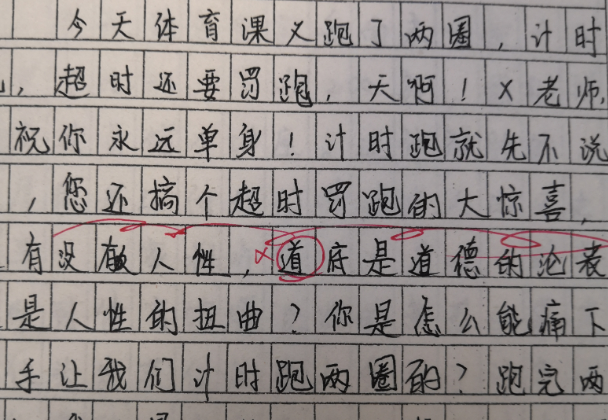 今天体育课又跑了两圈，计时
，超时还要罚跑，天啊！X老师，
祝你永远单身！计时跑就先不说
，您还搞个超时罚跑的大惊喜，
有没有人性，道底是道德的沦丧
是人性的扭曲？你是怎么能痛下
手让我们计时跑两圈的？跑完两